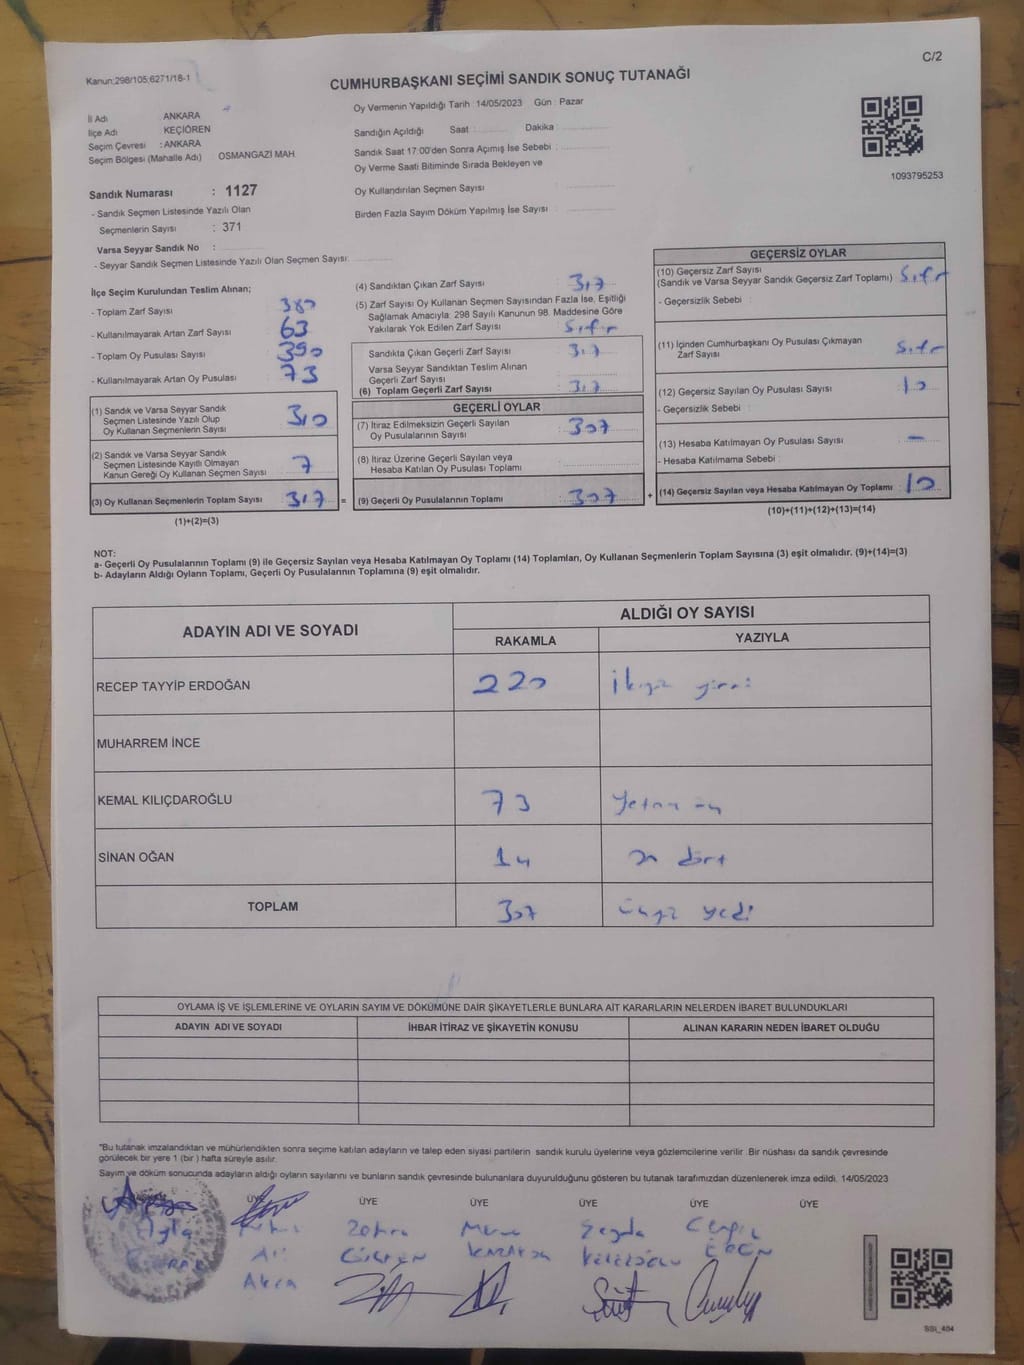 C/2
Kanun;298/105;6271/18-1
CUMHURBAŞKANI SEÇİMİ SANDIK SONUÇ TUTANAĞI
İl Adı ANKARA
İlçe Adı KEÇİÖREN
Seçim Çevresi : ANKARA
Seçim Bölgesi (Mahalle Adı) OSMANGAZİ MAH.
Sandık Numarası : 1127
- Sandık Seçmen Listesinde Yazılı Olan
Seçmenlerin Sayısı : 371
Varsa Seyyar Sandık No :
- Seyyar Sandık Seçmen Listesinde Yazılı Olan Seçmen Sayısı:
Oy Vermenin Yapıldığı Tarih : 14/05/2023 Gün : Pazar
Sandığın Açıldığı Saat Dakika
Sandık Saat 17:00'den Sonra Açımış İse Sebebi :
Oy Verme Saati Bitiminde Sırada Bekleyen ve
Oy Kullandırılan Seçmen Sayısı
Birden Fazla Sayım Döküm Yapılmış İse Sayısı
1093795253
İlçe Seçim Kurulundan Teslim Alınan;
- Toplam Zarf Sayısı 380
- Kullanılmayarak Artan Zarf Sayısı 63
- Toplam Oy Pusulası Sayısı 390
- Kullanılmayarak Artan Oy Pusulası 73
(1) Sandık ve Varsa Seyyar Sandık
Seçmen Listesinde Yazılı Olup
Oy Kullanan Seçmenlerin Sayısı 310
(2) Sandık ve Varsa Seyyar Sandık
Seçmen Listesinde Kayıtlı Olmayan
Kanun Gereği Oy Kullanan Seçmen Sayısı 7
(3) Oy Kullanan Seçmenlerin Toplam Sayısı 317 =
(1)+(2)=(3)
(4) Sandıktan Çıkan Zarf Sayısı 317
(5) Zarf Sayısı Oy Kullanan Seçmen Sayısından Fazla İse, Eşitliği
Sağlamak Amacıyla: 298 Sayılı Kanunun 98. Maddesine Göre
Yakılarak Yok Edilen Zarf Sayısı Sıfır
Sandıkta Çıkan Geçerli Zarf Sayısı 317
Varsa Seyyar Sandıktan Teslim Alınan
Geçerli Zarf Sayısı
(6) Toplam Geçerli Zarf Sayısı 317
GEÇERLİ OYLAR
(7) İtiraz Edilmeksizin Geçerli Sayılan
Oy Pusulalarının Sayısı 307
(8) İtiraz Üzerine Geçerli Sayılan veya
Hesaba Katılan Oy Pusulası Toplamı
(9) Geçerli Oy Pusulalarının Toplamı 307 +
GEÇERSİZ OYLAR
(10) Geçersiz Zarf Sayısı
(Sandık ve Varsa Seyyar Sandık Geçersiz Zarf Toplamı) Sıfır
- Geçersizlik Sebebi :
(11) İçinden Cumhurbaşkanı Oy Pusulası Çıkmayan
Zarf Sayısı Sıfır
(12) Geçersiz Sayılan Oy Pusulası Sayısı 10
- Geçersizlik Sebebi :
(13) Hesaba Katılmayan Oy Pusulası Sayısı : –
- Hesaba Katılmama Sebebi :
(14) Geçersiz Sayılan veya Hesaba Katılmayan Oy Toplamı 10
(10)+(11)+(12)+(13)=(14)
NOT:
a- Geçerli Oy Pusulalarının Toplamı (9) ile Geçersiz Sayılan veya Hesaba Katılmayan Oy Toplamı (14) Toplamları, Oy Kullanan Seçmenlerin Toplam Sayısına (3) eşit olmalıdır. (9)+(14)=(3)
b- Adayların Aldığı Oyların Toplamı, Geçerli Oy Pusulalarının Toplamına (9) eşit olmalıdır.
ADAYIN ADI VE SOYADI ALDIĞI OY SAYISI
RAKAMLA YAZIYLA
RECEP TAYYİP ERDOĞAN 220 ikiyüz yirmi
MUHARREM İNCE
KEMAL KILIÇDAROĞLU 73 yetmiş üç
SİNAN OĞAN 14 on dört
TOPLAM 307 üçyüz yedi
OYLAMA İŞ VE İŞLEMLERİNE VE OYLARIN SAYIM VE DÖKÜMÜNE DAİR ŞİKAYETLERLE BUNLARA AİT KARARLARIN NELERDEN İBARET BULUNDUKLARI
ADAYIN ADI VE SOYADI İHBAR İTİRAZ VE ŞİKAYETİN KONUSU ALINAN KARARIN NEDEN İBARET OLDUĞU
"Bu tutanak imzalandıktan ve mühürlendikten sonra seçime katılan adayların ve talep eden siyasi partilerin sandık kurulu üyelerine veya gözlemcilerine verilir .Bir nüshası da sandık çevresinde
görülecek bir yere 1 (bir ) hafta süreyle asılır.
Sayım ve döküm sonucunda adayların aldığı oyların sayılarını ve bunların sandık çevresinde bulunanlara duyurulduğunu gösteren bu tutanak tarafımızdan düzenlenerek imza edildi. 14/05/2023
ÜYE ÜYE ÜYE ÜYE ÜYE ÜYE
Ayla Zehra Şeyda Cengiz
Ali
SSİ_404